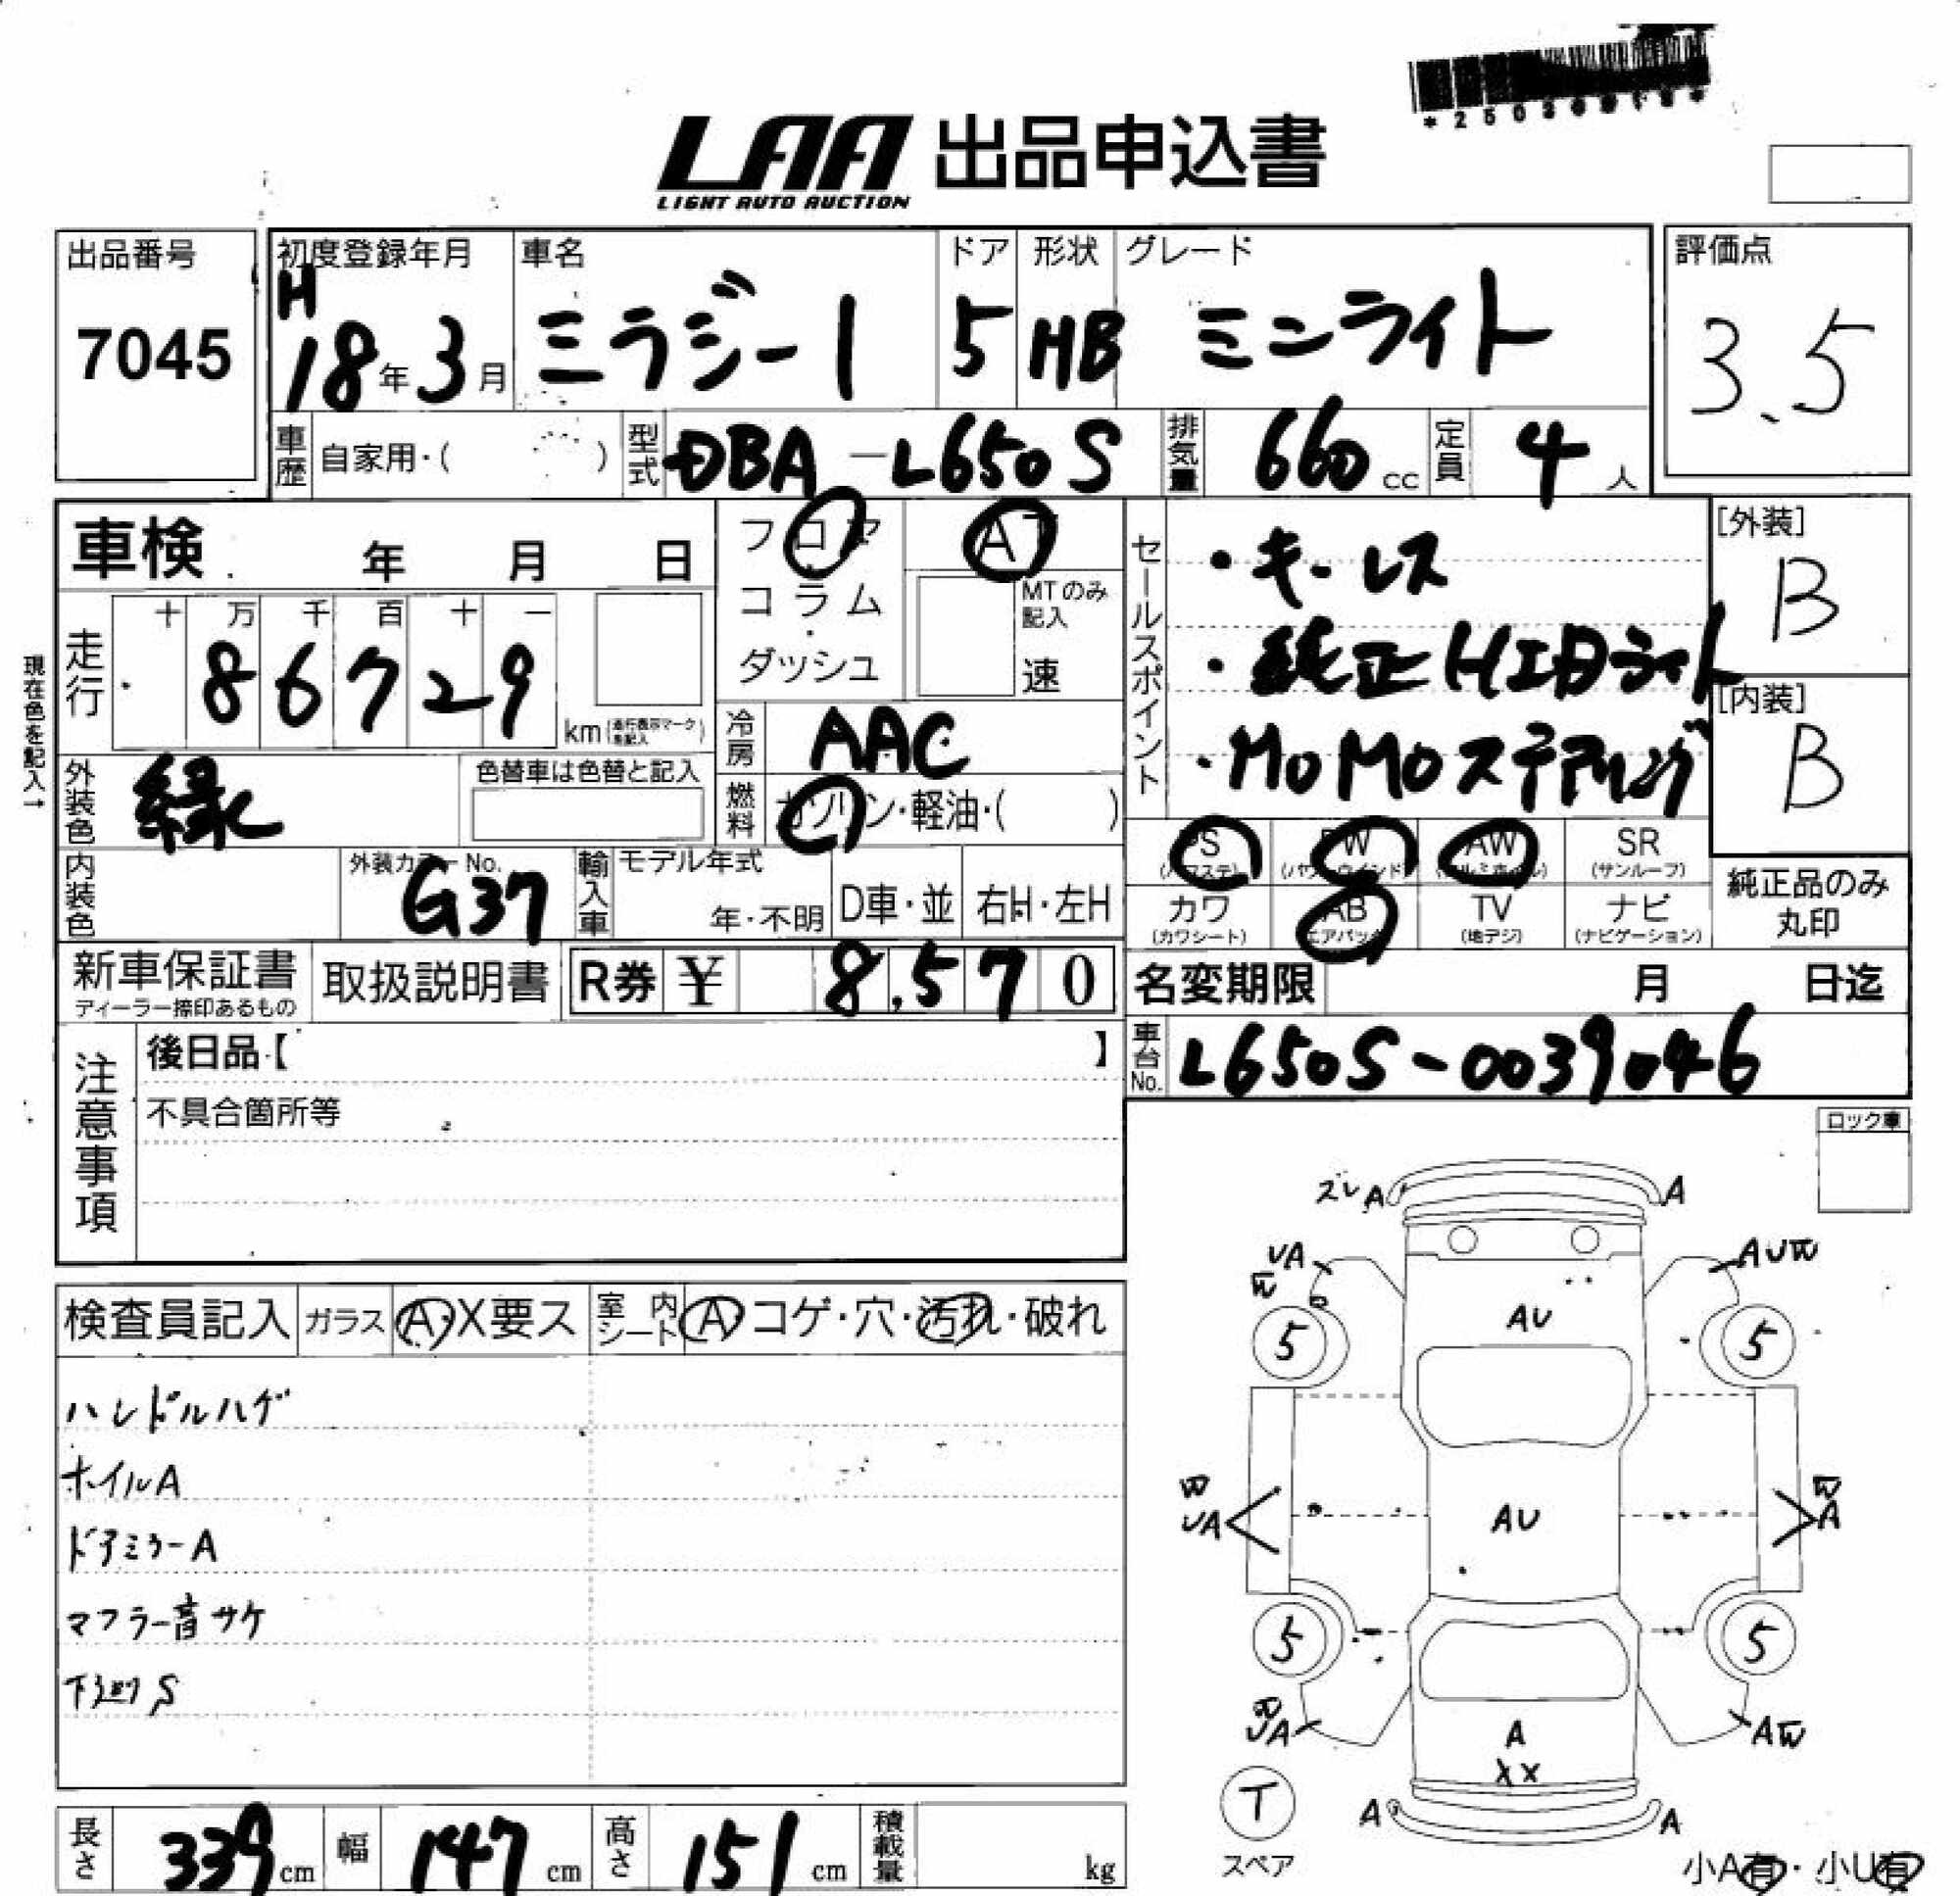 LAA 出品申込書
LIGHT AUTO AUCTION
出品番号
7045
初度登録年月
H
18年3月
車名
ミラジーノ
ドア
5
形状
HB
グレード
ミニライト
評価点
3.5
車歴 自家用・( )
型式 DBA-L650S
排気量 660 cc
定員 4人
車検 年 月 日
現在色を記入→
走行
十 万 千 百 十 一
8 6 7 2 9
km
外装色 緑
色替車は色替と記入
内装色
外装カラーNo.
G37
輸入車 モデル年式
年・不明 D車・並 右H・左H
フロア
コラム
・
ダッシュ
AT
MTのみ記入
速
冷房 AAC
燃料 ガソリン・軽油・( )
セールスポイント
・キーレス
・純正HIDライト
・MOMOステアリング
[外装]
B
[内装]
B
PS (パワステ)
PW (パワーウインド)
AW (アルミホイル)
SR (サンルーフ)
カワ (カワシート)
AB (エアバック)
TV (地デジ)
ナビ (ナビゲーション)
純正品のみ
丸印
新車保証書
ディーラー捺印あるもの
取扱説明書
R券 ¥ 8,570
名変期限 月 日迄
車台No. L650S-0039046
注意事項
後日品【 】
不具合箇所等
ロック車
検査員記入 ガラス A・X要ス 室内シート A コゲ・穴・汚れ・破れ
ハンドルハゲ
ホイルA
ドアミラーA
マフラー音サケ
下廻りS
ズレ A A
UA
W
AUW
5 AU 5
W
UA
AU
W
A
5 5
W
UA
A
XX
AW
T
スペア
A A
小A有・小U有
長さ 339 cm
幅 147 cm
高さ 151 cm
積載量 kg